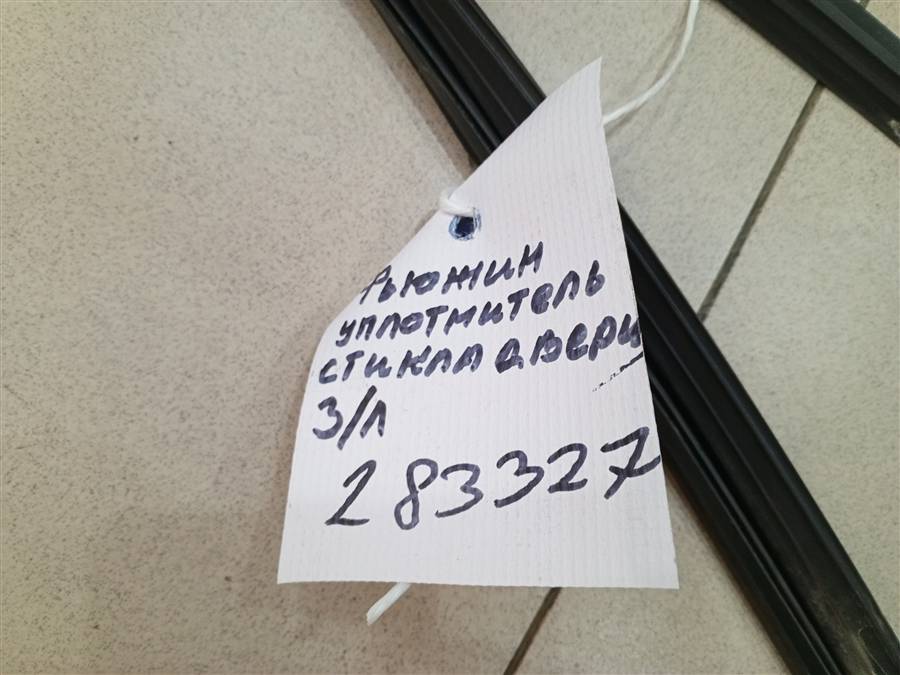 Фьюжин
уплотнитель
стикла двери
З/Л
283327